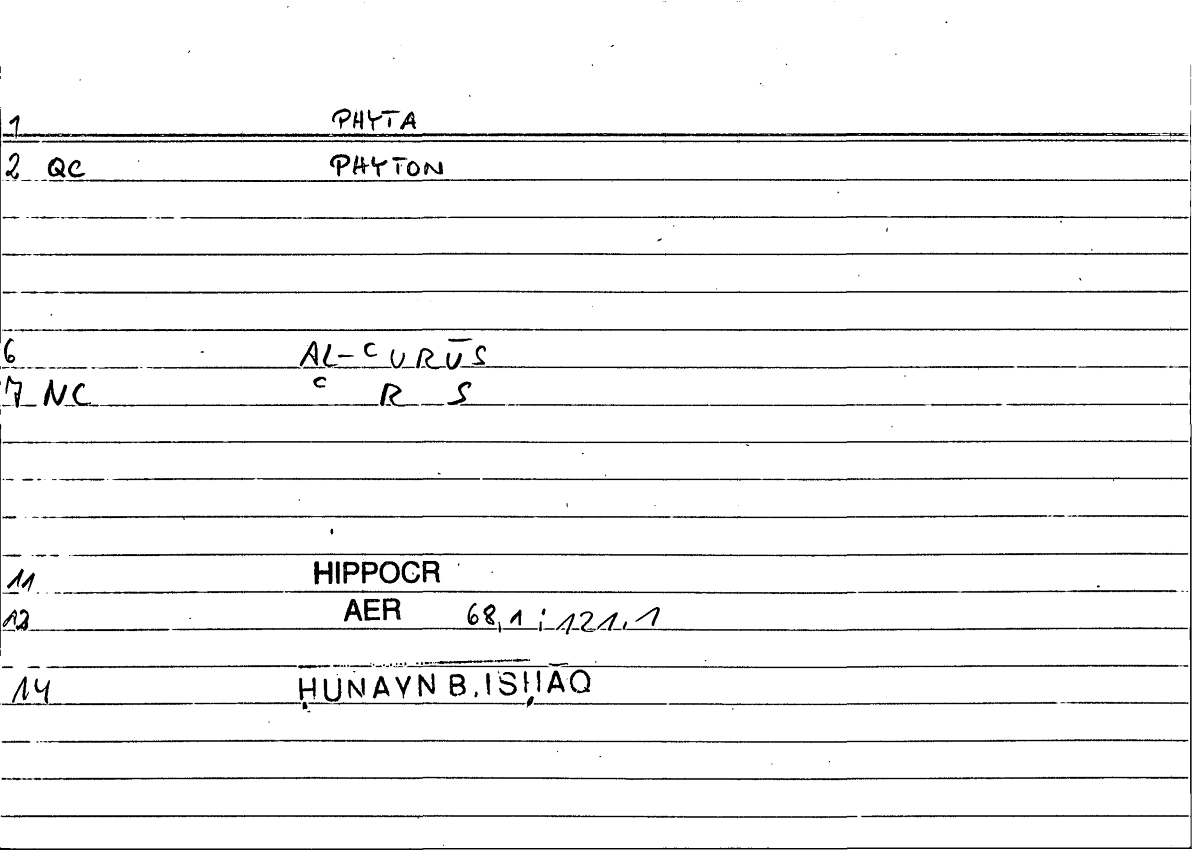 1 PHYTA
2 QC PHYTON
6 AL-ᶜURŪS
7 NC ᶜ R S
11 HIPPOCR
12 AER 68,1 ; 121,1
14 ḤUNAYN B. ISḤĀQ